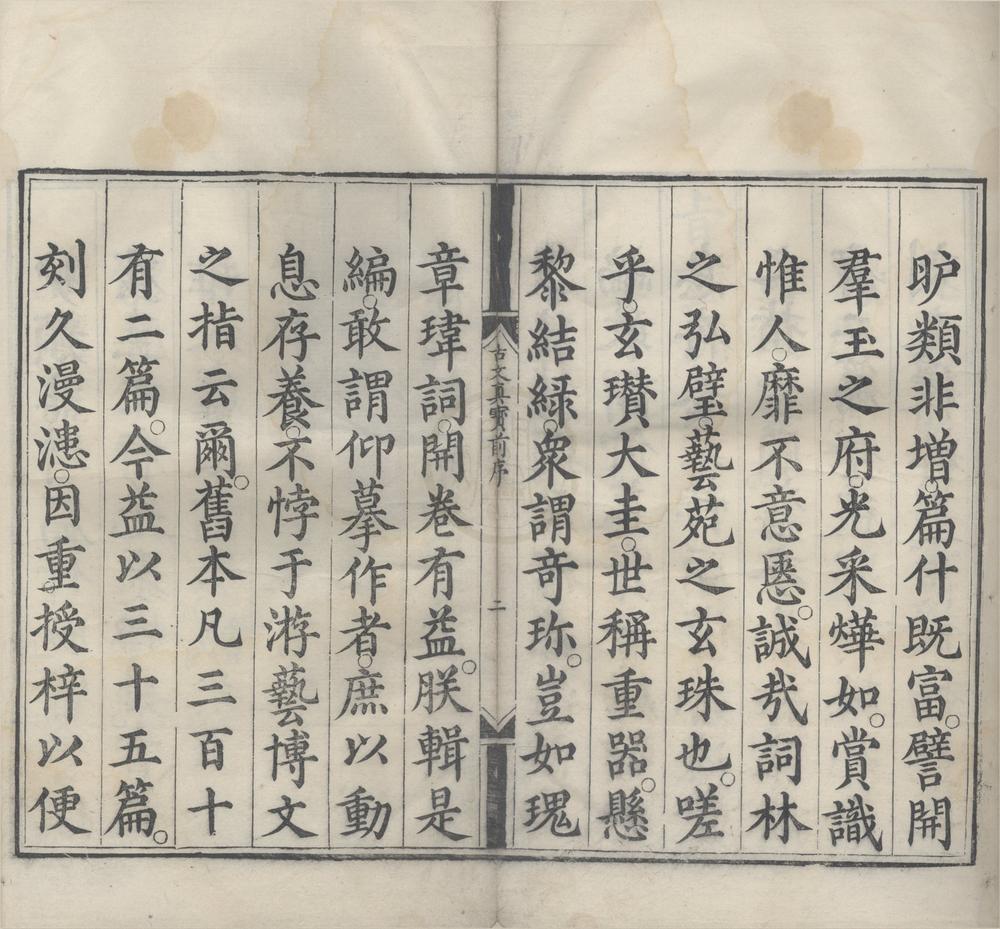 昈類非增。篇什既富。譬開
羣玉之府。光采燁如。賞識
惟人。靡不意愜。誠哉詞林
之弘璧。藝苑之玄珠也。嗟
乎。玄瓚大圭。世稱重器。懸
黎結緑。衆謂竒珎。豈如瑰
古文真寳前序
二
章瑋詞。開卷有益。朕輯是
編。敢謂仰摹作者。庶以動
息存養。不悖于游藝博文
之指云爾。舊本凡三百十
有二篇。今益以三十五篇。
刻久漫漶。因重授梓以便